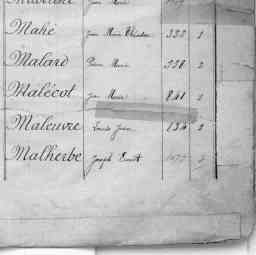 Mahé Jean Marie 333 2
Malard Pierre Marie 338 2
Malécot Jean Marie 841 2
Maleuvre Louis Jean 134 2
Malherbe Joseph Ernest